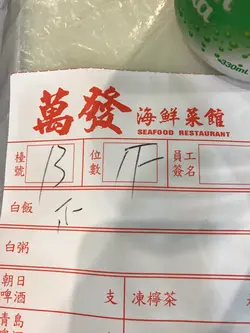 330mL
萬發 海鮮菜館
SEAFOOD RESTAURANT
檯號 13 位數 員工簽名
白飯
白粥
朝日啤酒 支 凍檸茶
青島